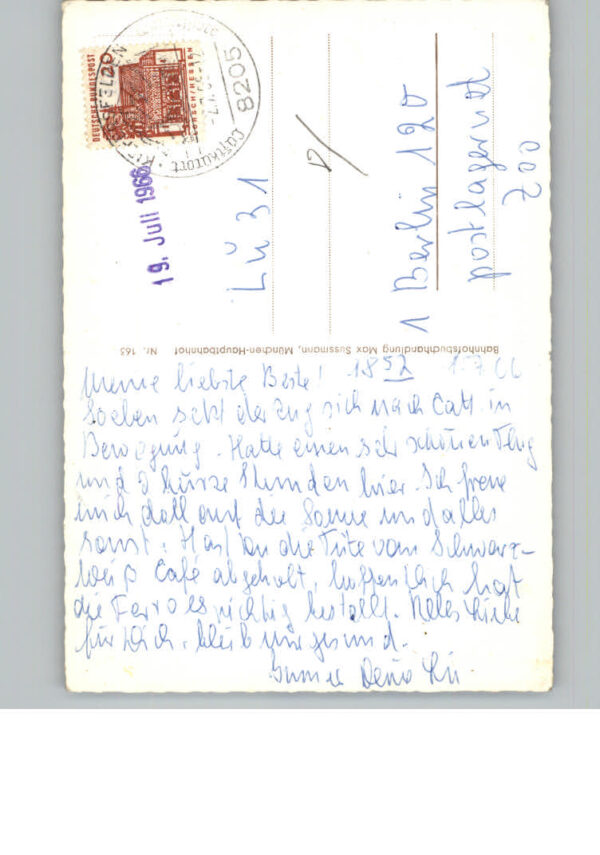 DEUTSCHE BUNDESPOST
20
8205
Luftkurort
19. Juli 1966
Lü 31
1 Berlin 120
postlagernd
Zoo
Bahnhofsbuchhandlung Max Sussmann, München-Hauptbahnhof Nr. 163
Meine liebste Beste! 18 52 1.7.66
Soeben setzt der Zug sich nach in
Bewegung. Hatte einen sehr schönen Flug
und 3 kurze Stunden hier. Ich freue
mich doll auf die Sonne und alles
sonst. Hast Du die Tüte vom Schwarz-
weiß Café abgeholt, hoffentlich hat
die es richtig bestellt. Alles Liebe
für Dich, bleib nur gesund.
Immer Deine Lü.